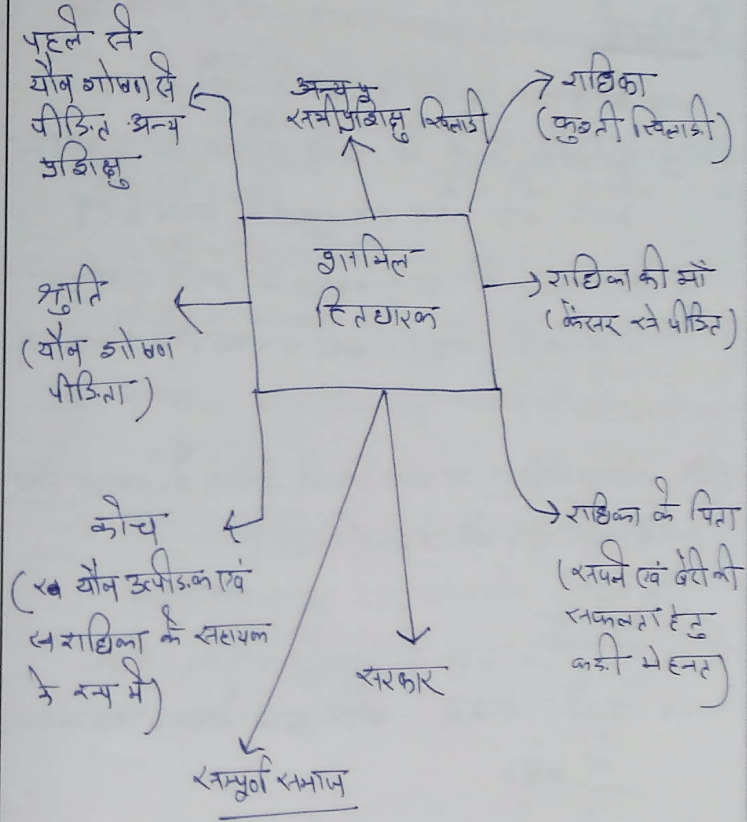 पहले से
यौन शोषण से
पीड़ित अन्य
प्रशिक्षु
अन्य
सभी प्रशिक्षु खिलाड़ी
राधिका
(कुश्ती खिलाड़ी)
शामिल
हितधारक
श्रुति
(यौन शोषण
पीड़िता)
राधिका की माँ
(कैंसर से पीड़ित)
कोच
(यौन उत्पीड़क एवं
राधिका के सहायक
के रूप में)
राधिका के पिता
(सपने एवं बेटी की
सफलता हेतु
कड़ी मेहनत)
सरकार
सम्पूर्ण समाज